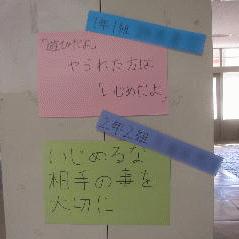 1年1組
「遊びだよ」
やられた方は
「いじめだよ」
2年2組
いじめるな
相手の事を
大切に